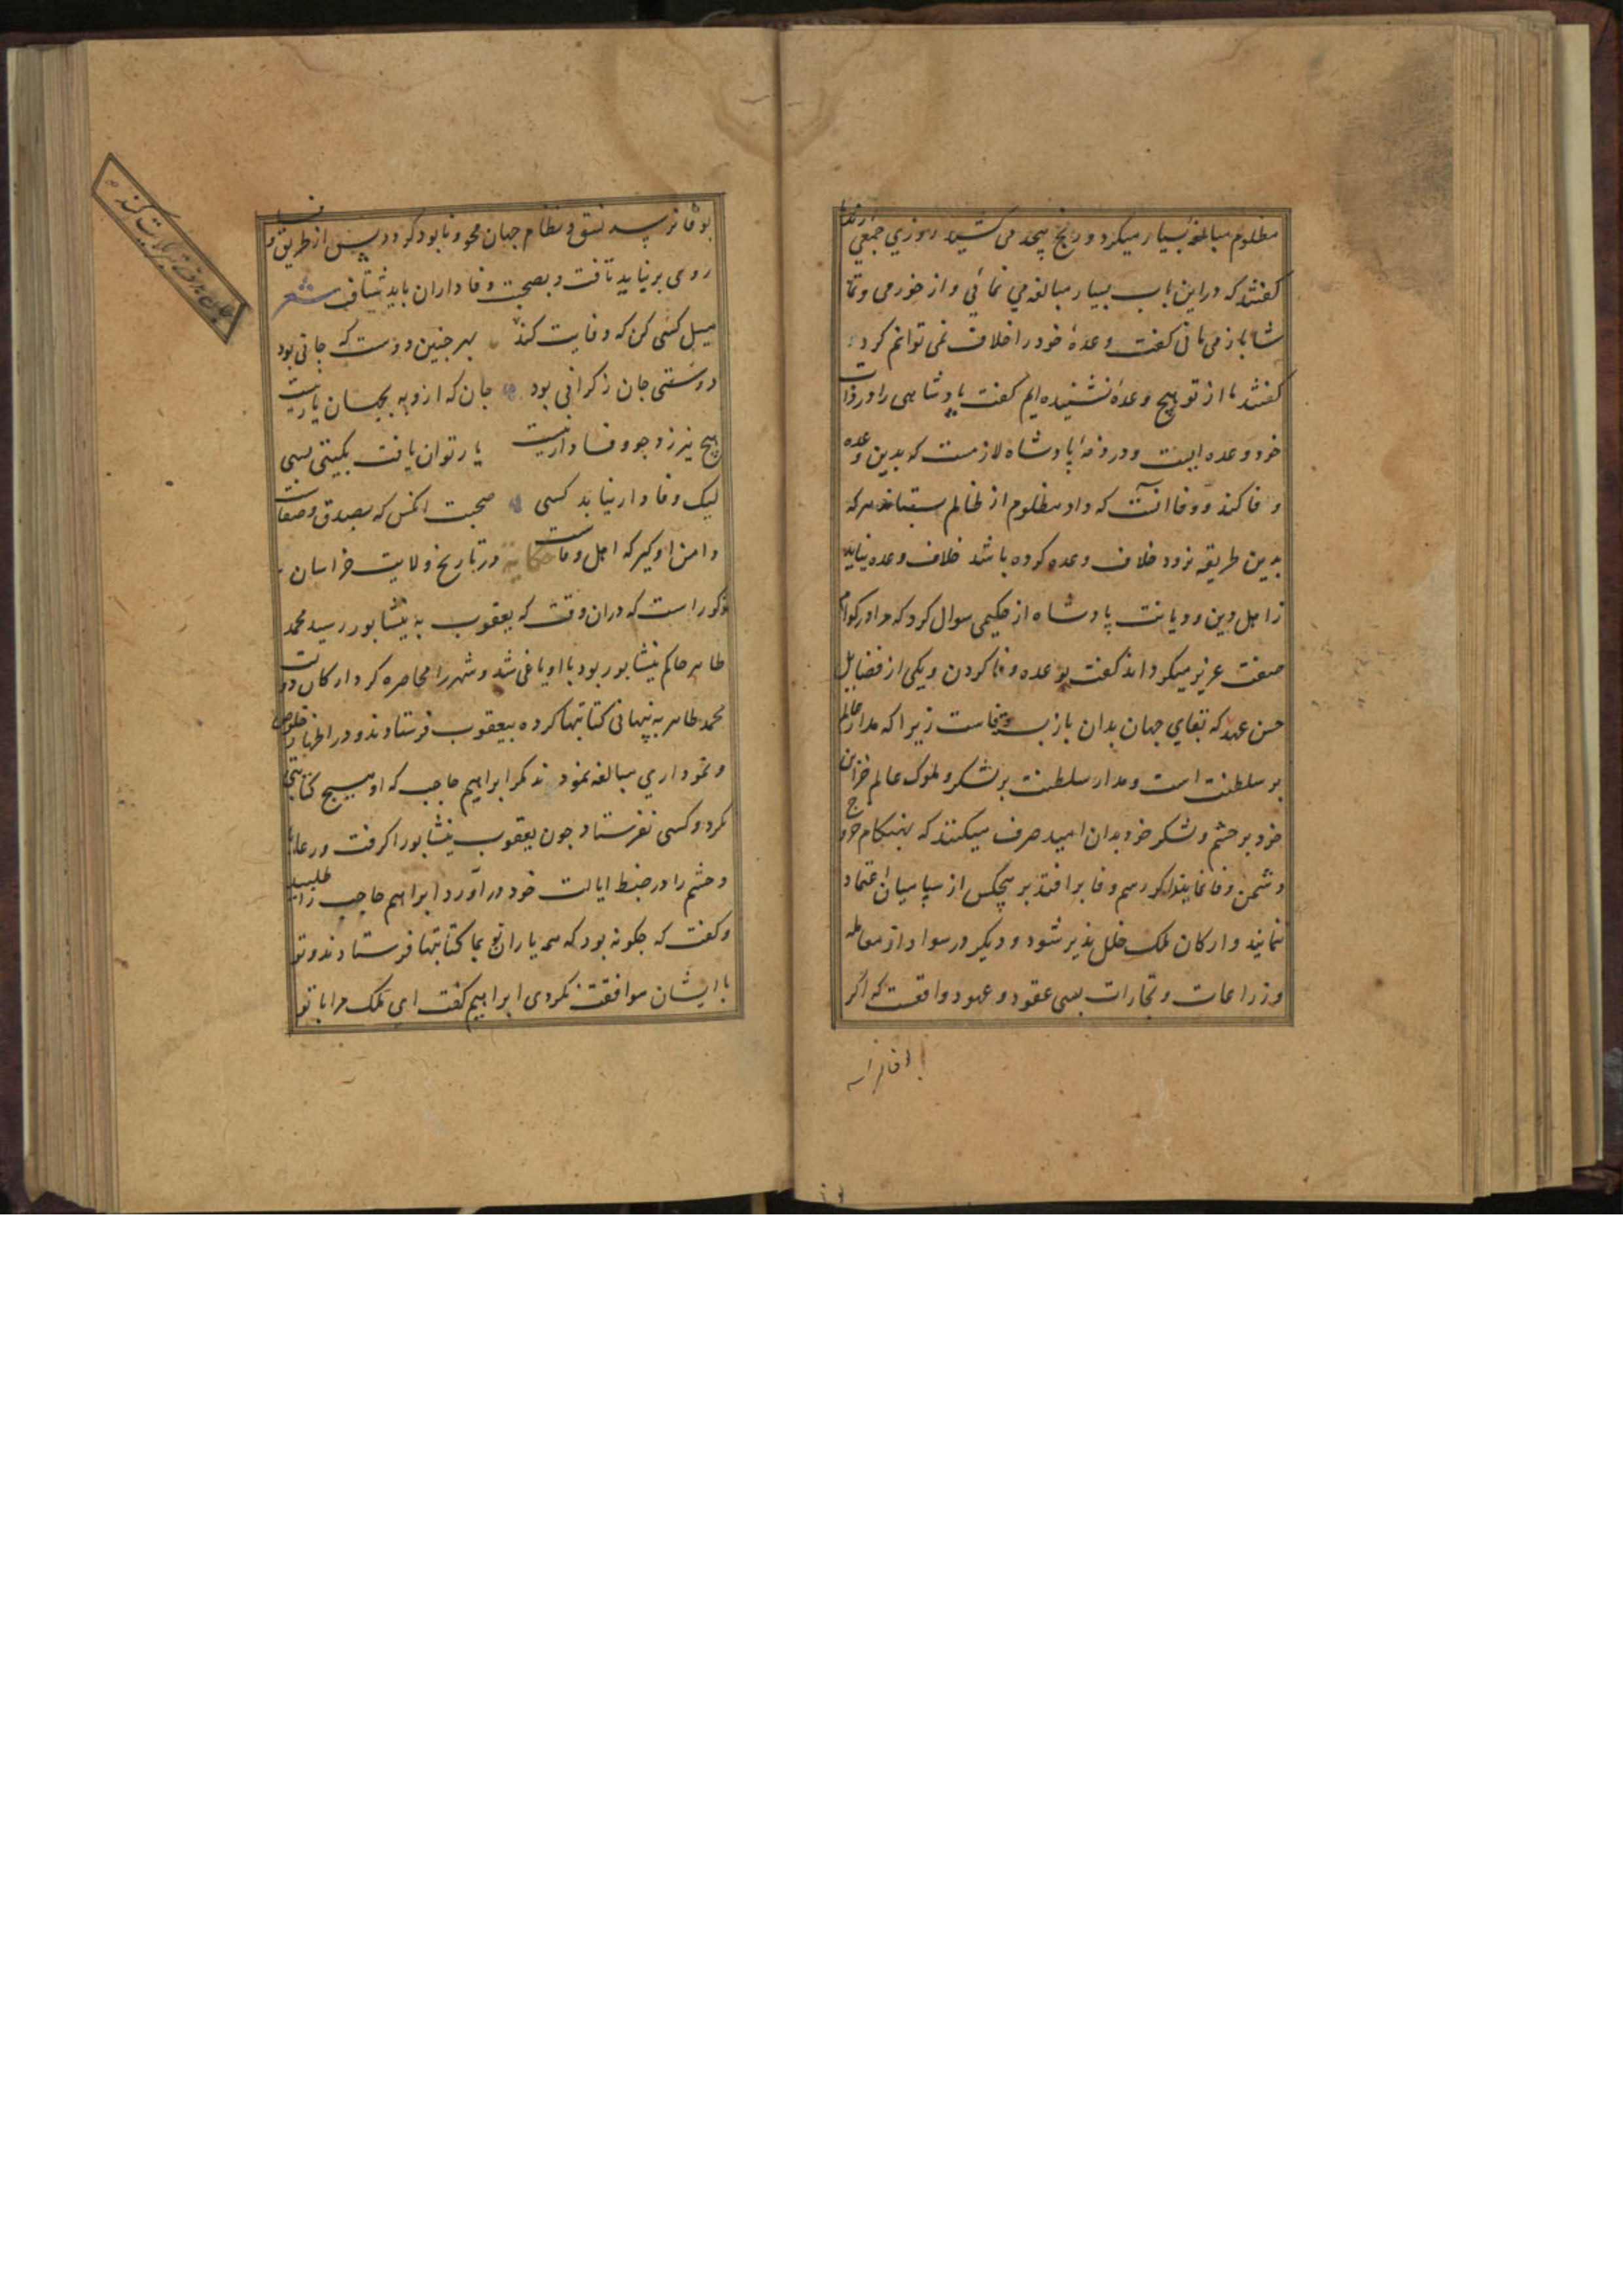 مظلوم مبالغه بسیار میکرد و رنج بیحد می کشید روزی جمعی از ندما
گفتند که دراین باب بسیار مبالغه می نمائی و از خورمی و تما
شا باز می مانی گفت وعدهٔ خود را خلاف نمی توانم کرد
گفتند ما از تو هیچ وعده نشنیده ایم گفت پادشاهی را در ذات
خود وعده ایست و در ذمهٔ پادشاه لازمست که بدین وعده
وفا کند و وفا آنست که داد مظلوم از ظالم بستاند هرکه
بدین طریقه نرود خلاف وعده کرده باشد خلاف وعده نیاید
ز اهل دین و دیانت پادشاه از حکیمی سوال کرد که مرد را کدام
صفت عزیز میکرداند گفت بوعده وفا کردن و یکی از فضایل
حسن عهد که بقای جهان بدان باز بسته وفاست زیرا که مدار عالم
بر سلطنت است و مدار سلطنت بر لشکر و ملوک عالم خزاین
خود بر حشم و لشکر خود بدان امید صرف میکنند که بهنکام خروج
دشمن وفا نمایند اکر رسم وفا برافتد بر هیچکس از سپاسیان اعتماد
نمایند و ارکان ملک خلل پذیر شود و دیکر در سواد از معامله
و زراعات و تجارات بسی عقود و عهود واقعست که اگر
بوفا نرسد
بوفا نرسد نسق و نظام جهان محو و نابود کردد پس از طریق وفا
روی برنیاید تافت و بصحبت وفاداران باید شتافت شعر
میل کسی کن که وفایت کند بهر چنین دوست که جانی بود
دوستی جان ز کرانی بود جان که ازو به بجهان یار نیست
هیچ نیرزد چو وفادار نیست یار توان یافت بکیتی بسی
لیک وفادار نیابد کسی صحبت آنکس که بصدق و صفاست
دامن او کیر که اهل وفاست حکایة در تاریخ ولایت خراسان
مذکور است که دران وقت که یعقوب به نیشابور رسید محمد
طاهر حاکم نیشابور بود با او یاغی شد و شهر را محاصره کرد ارکان دولت
محمد طاهر به پنهانی کتابتها کرده بیعقوب فرستادند و در اظهار خلوص
و نموداری مبالغه نمودند مکر ابراهیم حاجب که او هیچ کتابتی
نکرد و کسی نفرستاد چون یعقوب نیشابور را کرفت و رعایا
و حشم را در ضبط ایالت خود درآورد ابراهیم حاجب را طلبید
و کفت که چکونه بود که همه یاران تو بما کتابتها فرستادند و تو
با ایشان موافقت نکردی ابراهیم گفت ای ملک مرا با تو